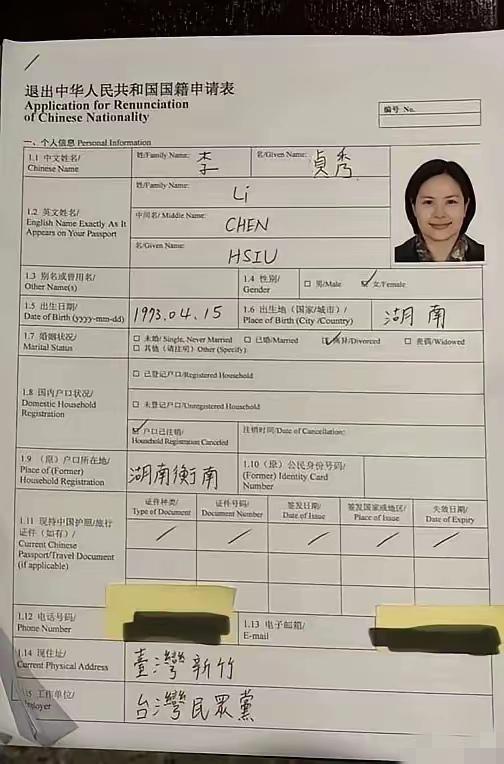 退出中华人民共和国国籍申请表
Application for Renunciation
of Chinese Nationality
编号 No.
一、个人信息 Personal Information
1.1 中文姓名/
Chinese Name
姓/Family Name: 李
名/Given Name: 貞秀
1.2 英文姓名/
English Name Exactly As It
Appears on Your Passport
姓/Family Name:
Li
中间名/ Middle Name:
CHEN
名/Given Name:
HSIU
1.3 别名或曾用名/
Other Name(s)
1.4 性别/
Gender
□ 男/Male ☑ 女/Female
1.5 出生日期/
Date of Birth (yyyy-mm-dd)
1973.04.15
1.6 出生地（国家/城市）/
Place of Birth (City /Country)
湖南
1.7 婚姻状况/
Marital Status
□ 未婚/ Single, Never Married □ 已婚/Married ☑ 离异/Divorced □ 丧偶/Widowed
□ 其他（请注明）Other (Specify):
1.8 国内户口状况/
Domestic Household
Registration
□ 已登记户口/Registered Household
□ 未登记户口/Unregistered Household
☑ 户口已注销/
Household Registration Canceled
注销时间/Date of Cancellation:
1.9 （原）户口所在地/
Place of (Former)
Household Registration
湖南衡南
1.10（原）公民身份号码/
(Former) Identity Card
Number
1.11 现持中国护照/旅行
证件（如有）/
Current Chinese
Passport/Travel Document
(if applicable)
证件种类/
Type of Document
证件号码/
Document Number
签发日期/
Date of Issue
签发国家或地区/
Place of Issue
失效日期/
Date of Expiry
1.12 电话号码/
Phone Number
1.13 电子邮箱/
E-mail
1.14 现住址/
Current Physical Address
臺灣新竹
工作单位/
台灣民眾黨